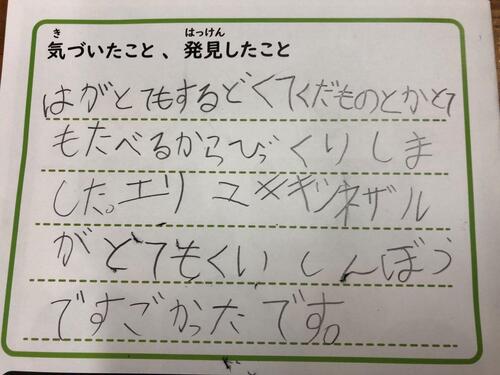 き はっけん
気づいたこと、発見したこと
はがとてもするどくてくだものとかとて
もたべるからびっくりしま
した。エリマキキツネザル
がとてもくいしんぼう
ですごかったです。